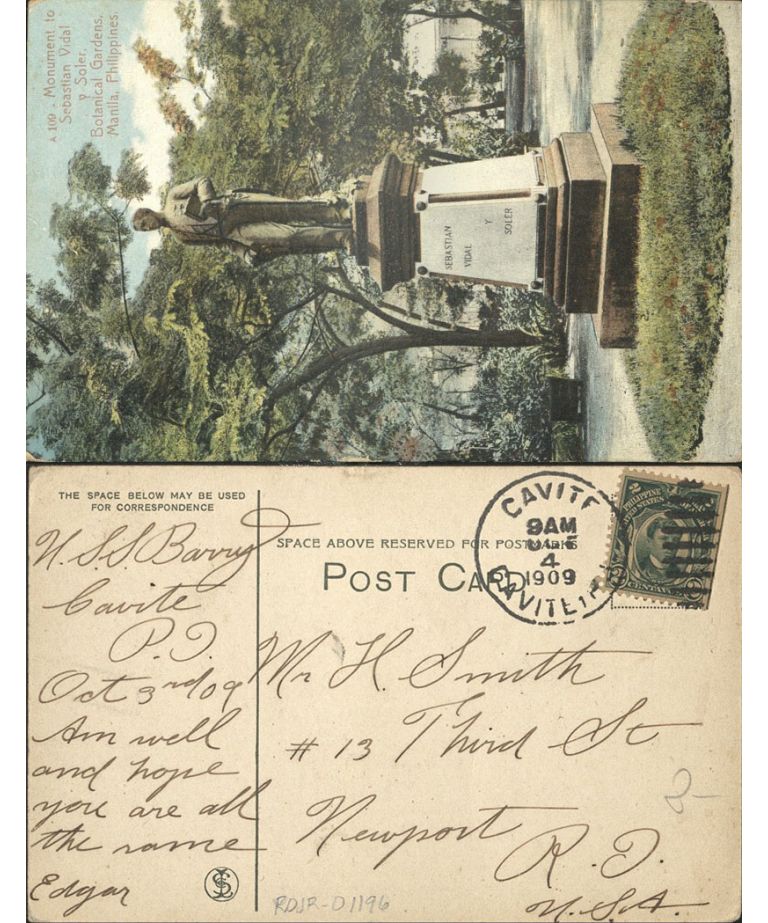 A 109 - Monument to
Sebastian Vidal
y Soler,
Botanical Gardens,
Manila, Philippines.
SEBASTIAN
VIDAL
Y
SOLER
THE SPACE BELOW MAY BE USED
FOR CORRESPONDENCE
U.S.S Barry
Cavite
P.I.
Oct 3rd 09
Am well
and hope
you are all
the same
Edgar
SPACE ABOVE RESERVED FOR POSTMARKS
POST CARD
CAVITE
9AM
4
1909
CAVITE
2
PHILIPPINE
UNITED STATES
CENTAVOS
Mr H. Smith
# 13 Third St
Newport
R.I.
U.S.A.
2-
RDJR-D1196